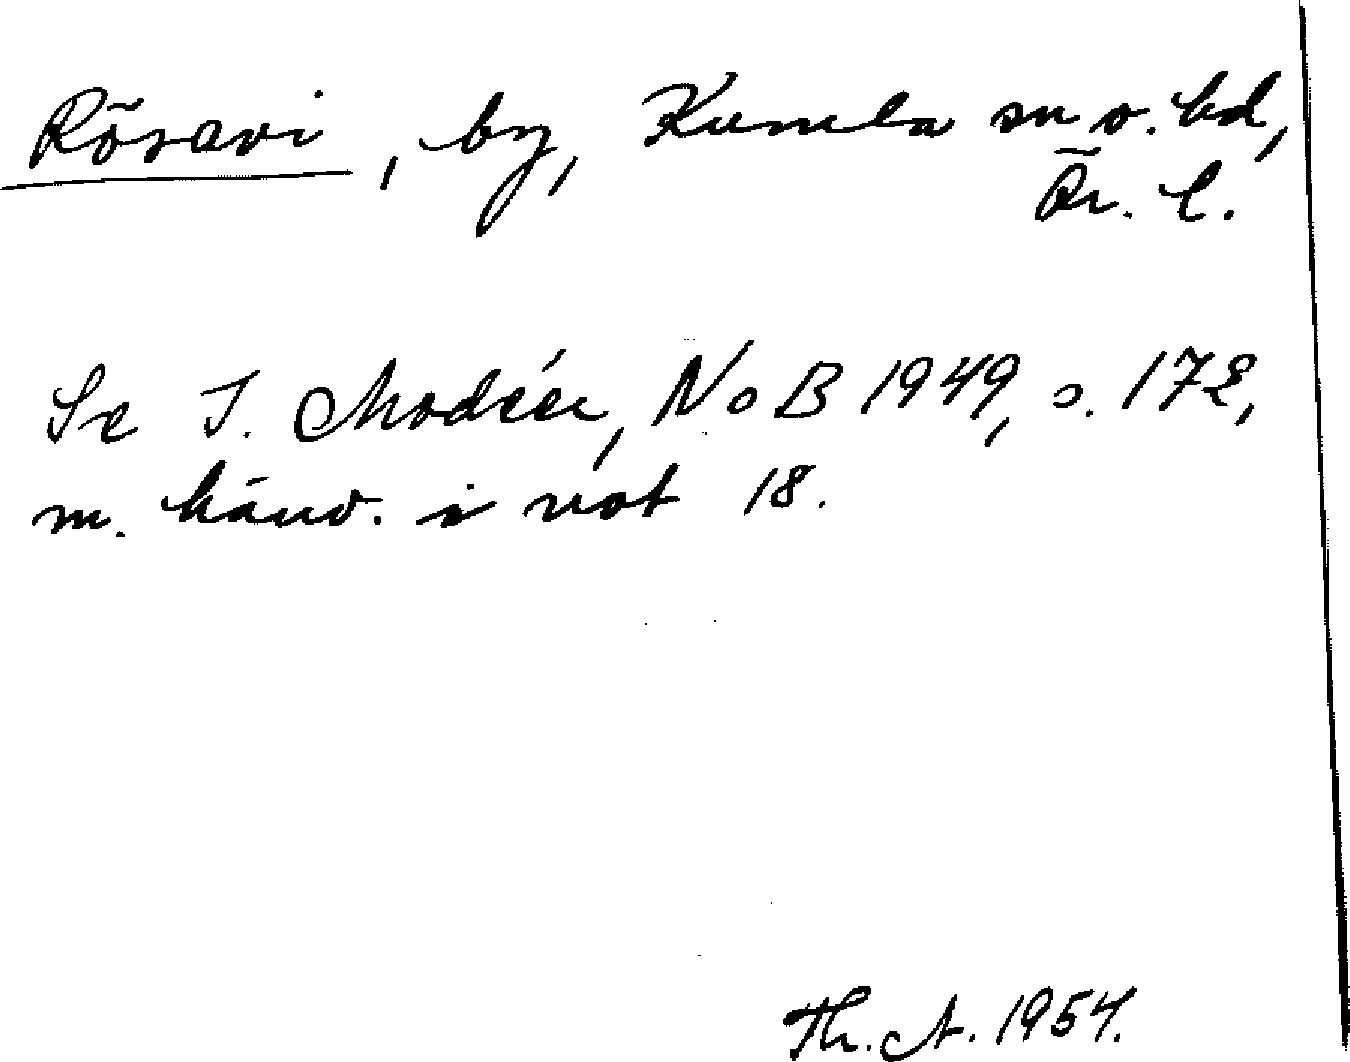 Rösavi, by, Kumla sn o. hd,
Ör. l.
Se I. Modéer, NoB 1949, s. 172,
m. hänv. i not 18.
Th. A. 1954.